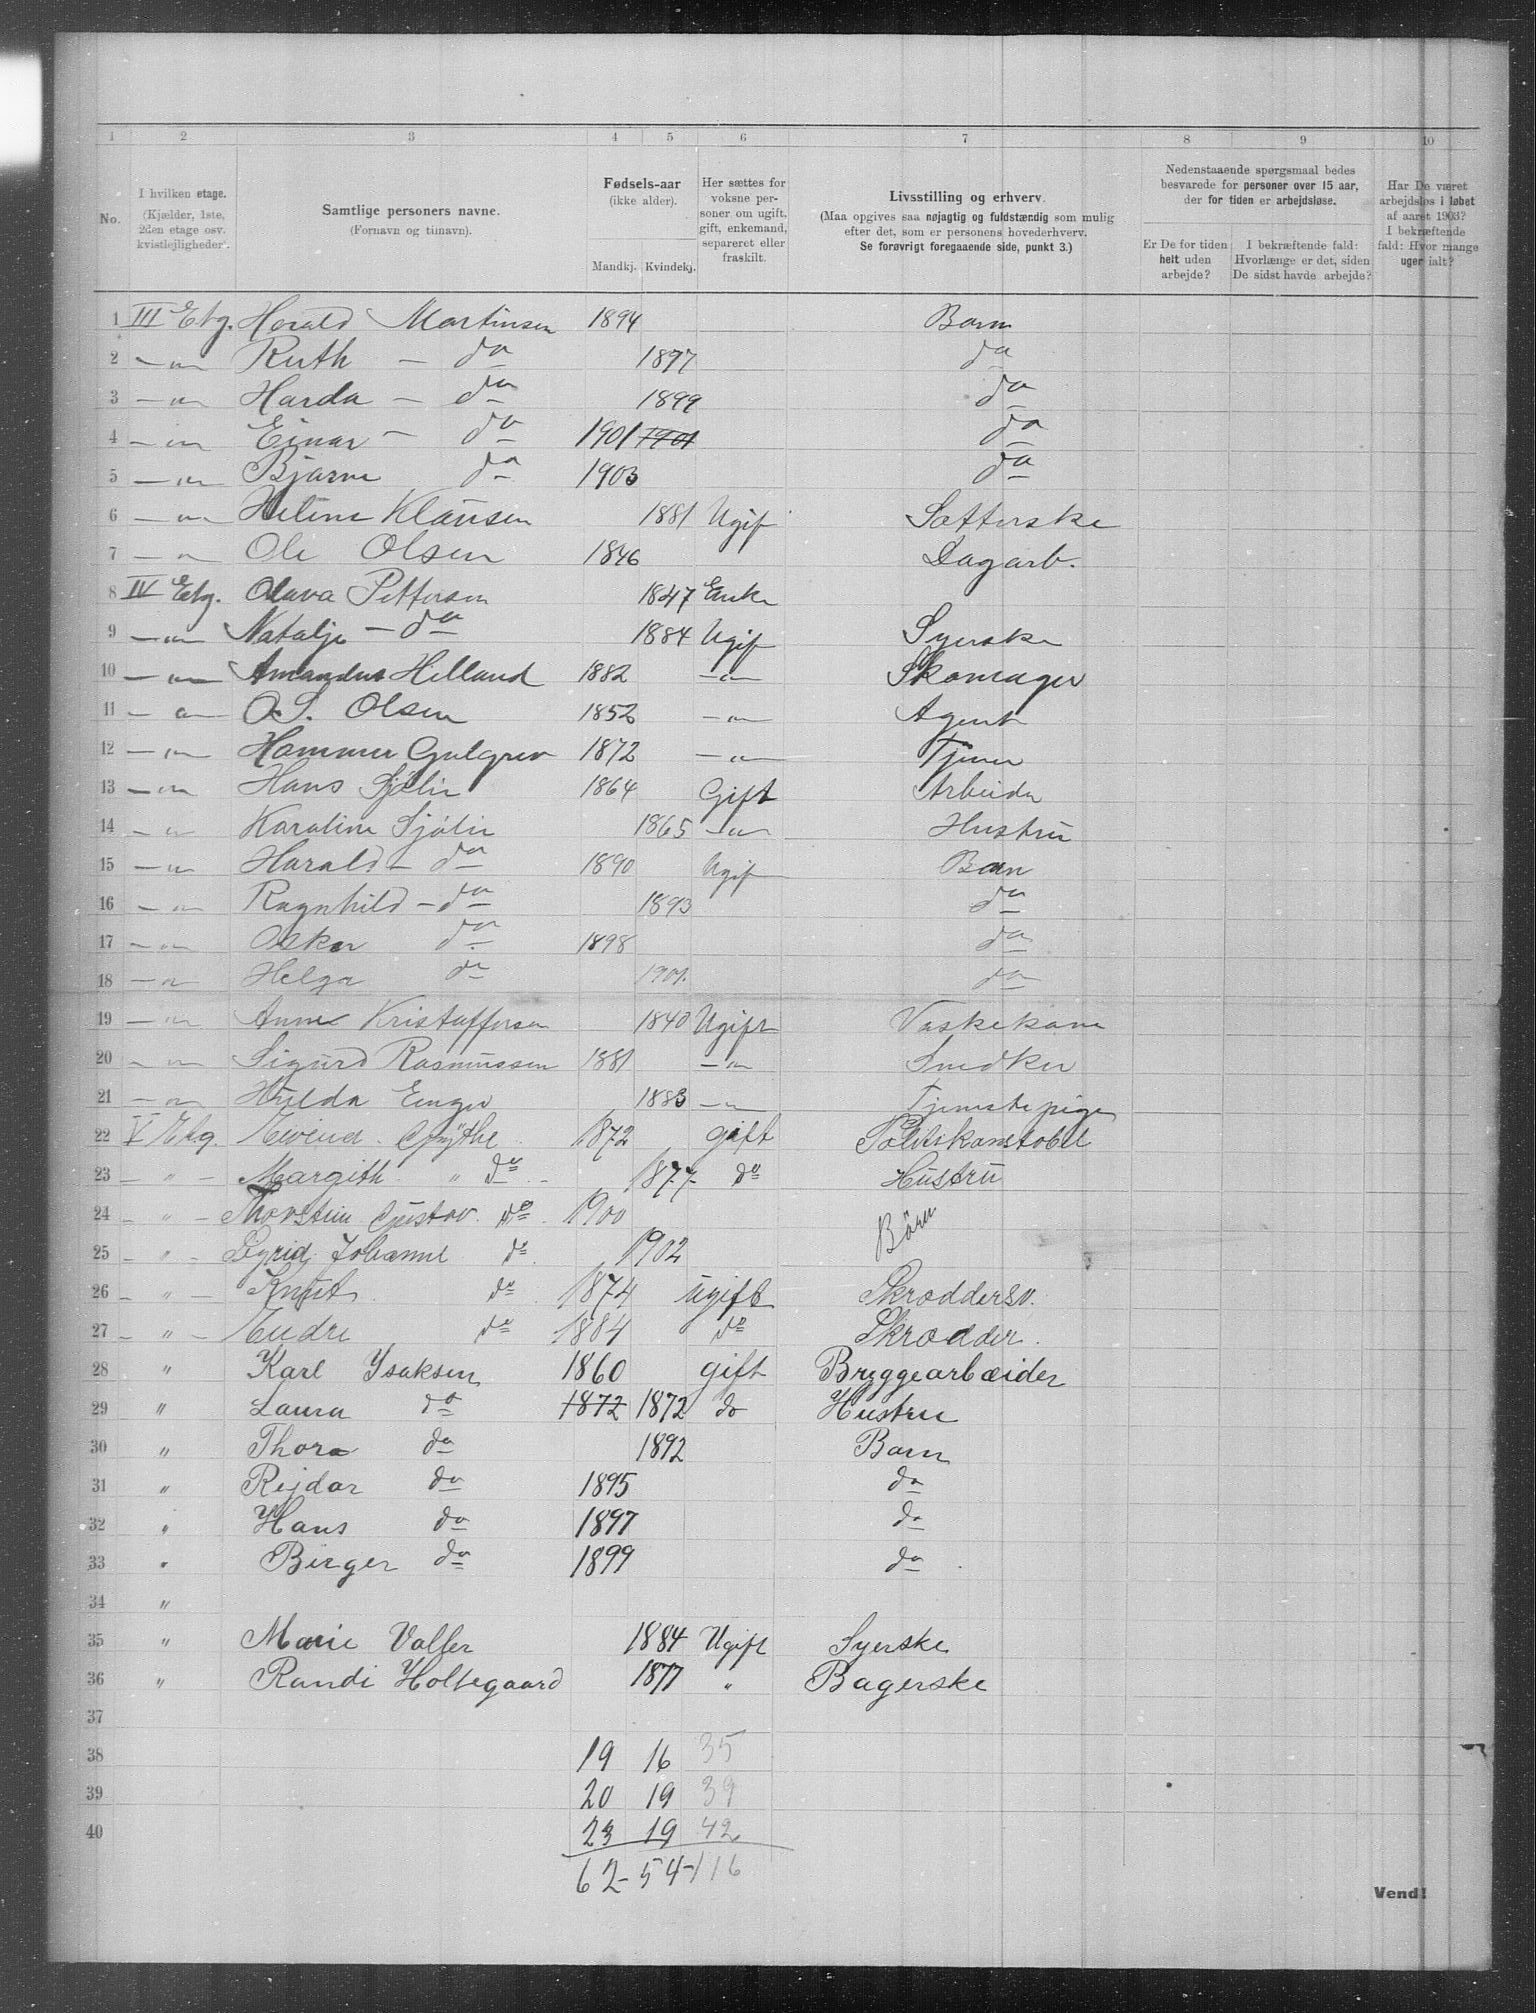 1 2 3 4 5 6 7 8 9 10
No.
I hvilken etage.
(Kjælder, 1ste,
2den etage osv.
kvistleiligheder.
Samtlige personers navne.
(Fornavn og tilnavn).
Fødsels-aar
(ikke alder).
Mandkj. Kvindekj.
Her sættes for
voksne per-
soner om ugift,
gift, enkemand,
separeret eller
fraskilt.
Livsstilling og erhverv.
(Maa opgives saa nøjagtig og fuldstændig som mulig
efter det, som er personens hovederhverv.
Se forøvrigt foregaaende side, punkt 3.)
Nedenstaaende spørgsmaal bedes
besvarede for personer over 15 aar,
der for tiden er arbejdsløse.
Er De for tiden
helt uden
arbejde?
I bekræftende fald:
Hvorlænge er det, siden
De sidst havde arbejde?
Har De været
arbejdsløs i løbet
af aaret 1903?
I bekræftende
fald: Hvor mange
uger ialt?
1 III Etg. Harald Martinsen 1894 Barn
2 — " — Ruth — do 1897 do
3 — " — Harda — do 1899 do
4 — " — Einar — do 1901 1901 do
5 — " — Bjarne do 1903 do
6 — " — Heline Klausen 1881 Ugif Sætterske
7 — " Ole Olsen 1846 Dagarb.
8 IV Etg. Olava Pettersen 1847 Enke
9 — " — Natalje — do 1884 Ugif Syerske
10 — " — Amandus Helland 1882 — " — Skomager
11 — " — O. S. Olsen 1852 — " — Agent
12 — " — Hammer 1872 — " — Tjener
13 — " — Hans Sjølin 1864 Gift Arbeider
14 — " — Karoline Sjølin 1865 — " — Hustru
15 — " — Harald — do 1890 Ugif Barn
16 — " — Ragnhild — do 1893 do
17 — " — Oskar do 1898 do
18 — " — Helga do 1901. do
19 — " — Anne Kristoffersen 1840 Ugift Vaskekone
20 — " — Sigurd Rasmussen 1881 — " — Snedker
21 — " — Hulda 1883 — " — Tjenestepige
22 V Etg. 1872 gift Politikonstobel
23 — " — Margith " do 1877 do Hustru
24 — " — Thorstein Gustav. do 1900 Börn
25 — " — Sigrid Johanne do 1902
26 — " — Knut do 1874 ugift Skræddersv.
27 — " — Endre do 1884 do Skrædder.
28 " Karl Ysaksen 1860 gift Bryggearbeider
29 " Laura do 1872 1872 do Hustru
30 " Thora do 1892 Barn
31 " Rejdar do 1895 do
32 " Hans do 1897 do
33 " Birger do 1899 do
34 "
35 " Marie Valler 1884 Ugift Syerske
36 " Randi Holtegaard 1877 " Bagerske
37
38 19 16 35
39 20 19 39
40 23 19 42
62 - 54 - 116
Vend!